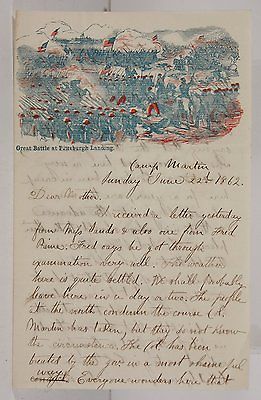 Great Battle at Pittsburgh Landing.
Camp Martin
Sunday June 22d 1862.
Dear Mother
I received a letter yesterday
from Miss Sands & also one from Fred
Fred says he got through
examination very well. The weather
here is quite settled. We shall probably
leave here in a day or two. The people
at the north condemn the course Col.
Martin has taken, but they do not know
the circumstances. The Col. has been
treated by the gov. in a most shameful
way. Everyone wonders here that